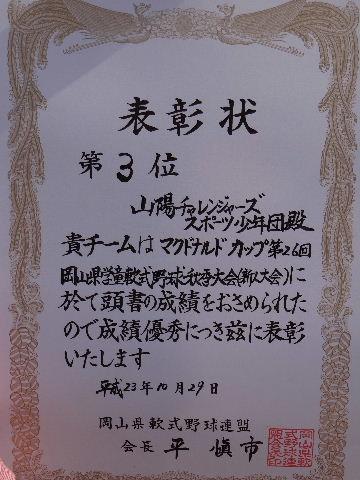 表彰状
第3位
山陽チャレンジャーズ
スポーツ少年団殿
貴チームはマクドナルドカップ第26回
岡山県学童軟式野球秋季大会(新人大会)に
於て頭書の成績をおさめられた
ので成績優秀につき茲に表彰
いたします
平成23年10月29日
岡山県軟式野球連盟
会長 平慎市